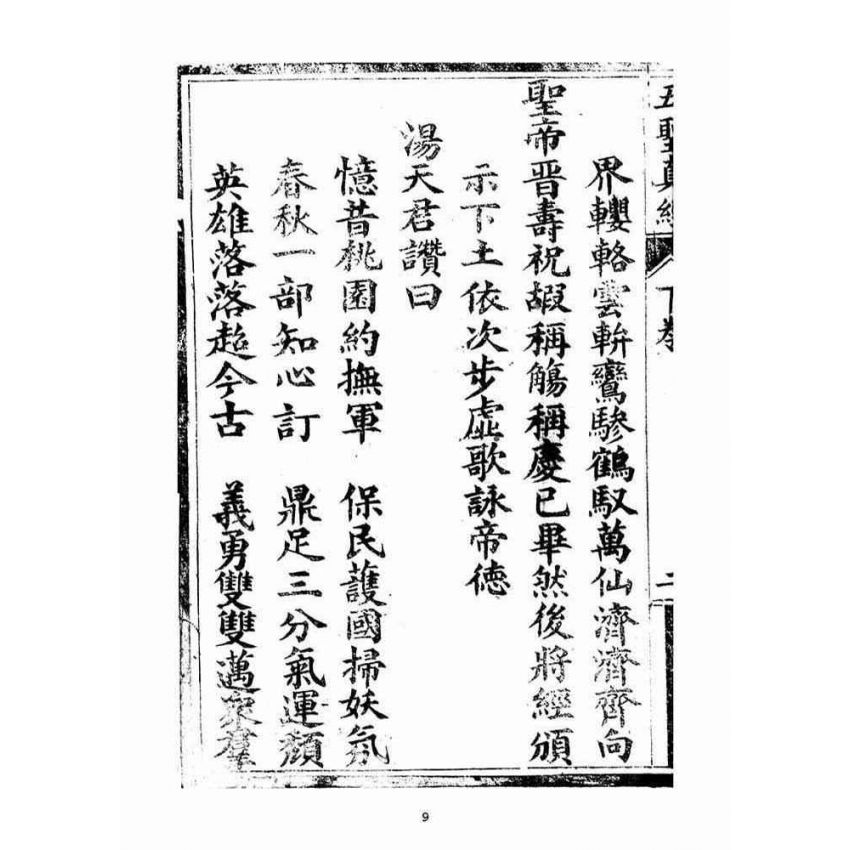 五聖真經 下卷 二
界轇輅雲軿鸞驂鶴馭萬仙濟濟齊向
聖帝晋壽祝嘏稱觴稱慶已畢然後將經頒
示下土依次步虛歌詠帝德
湯天君讚曰
憶昔桃園約撫軍 保民護國掃妖氛
春秋一部知心訂 鼎足三分氣運頹
英雄落落超今古 義勇雙雙邁眾羣
9